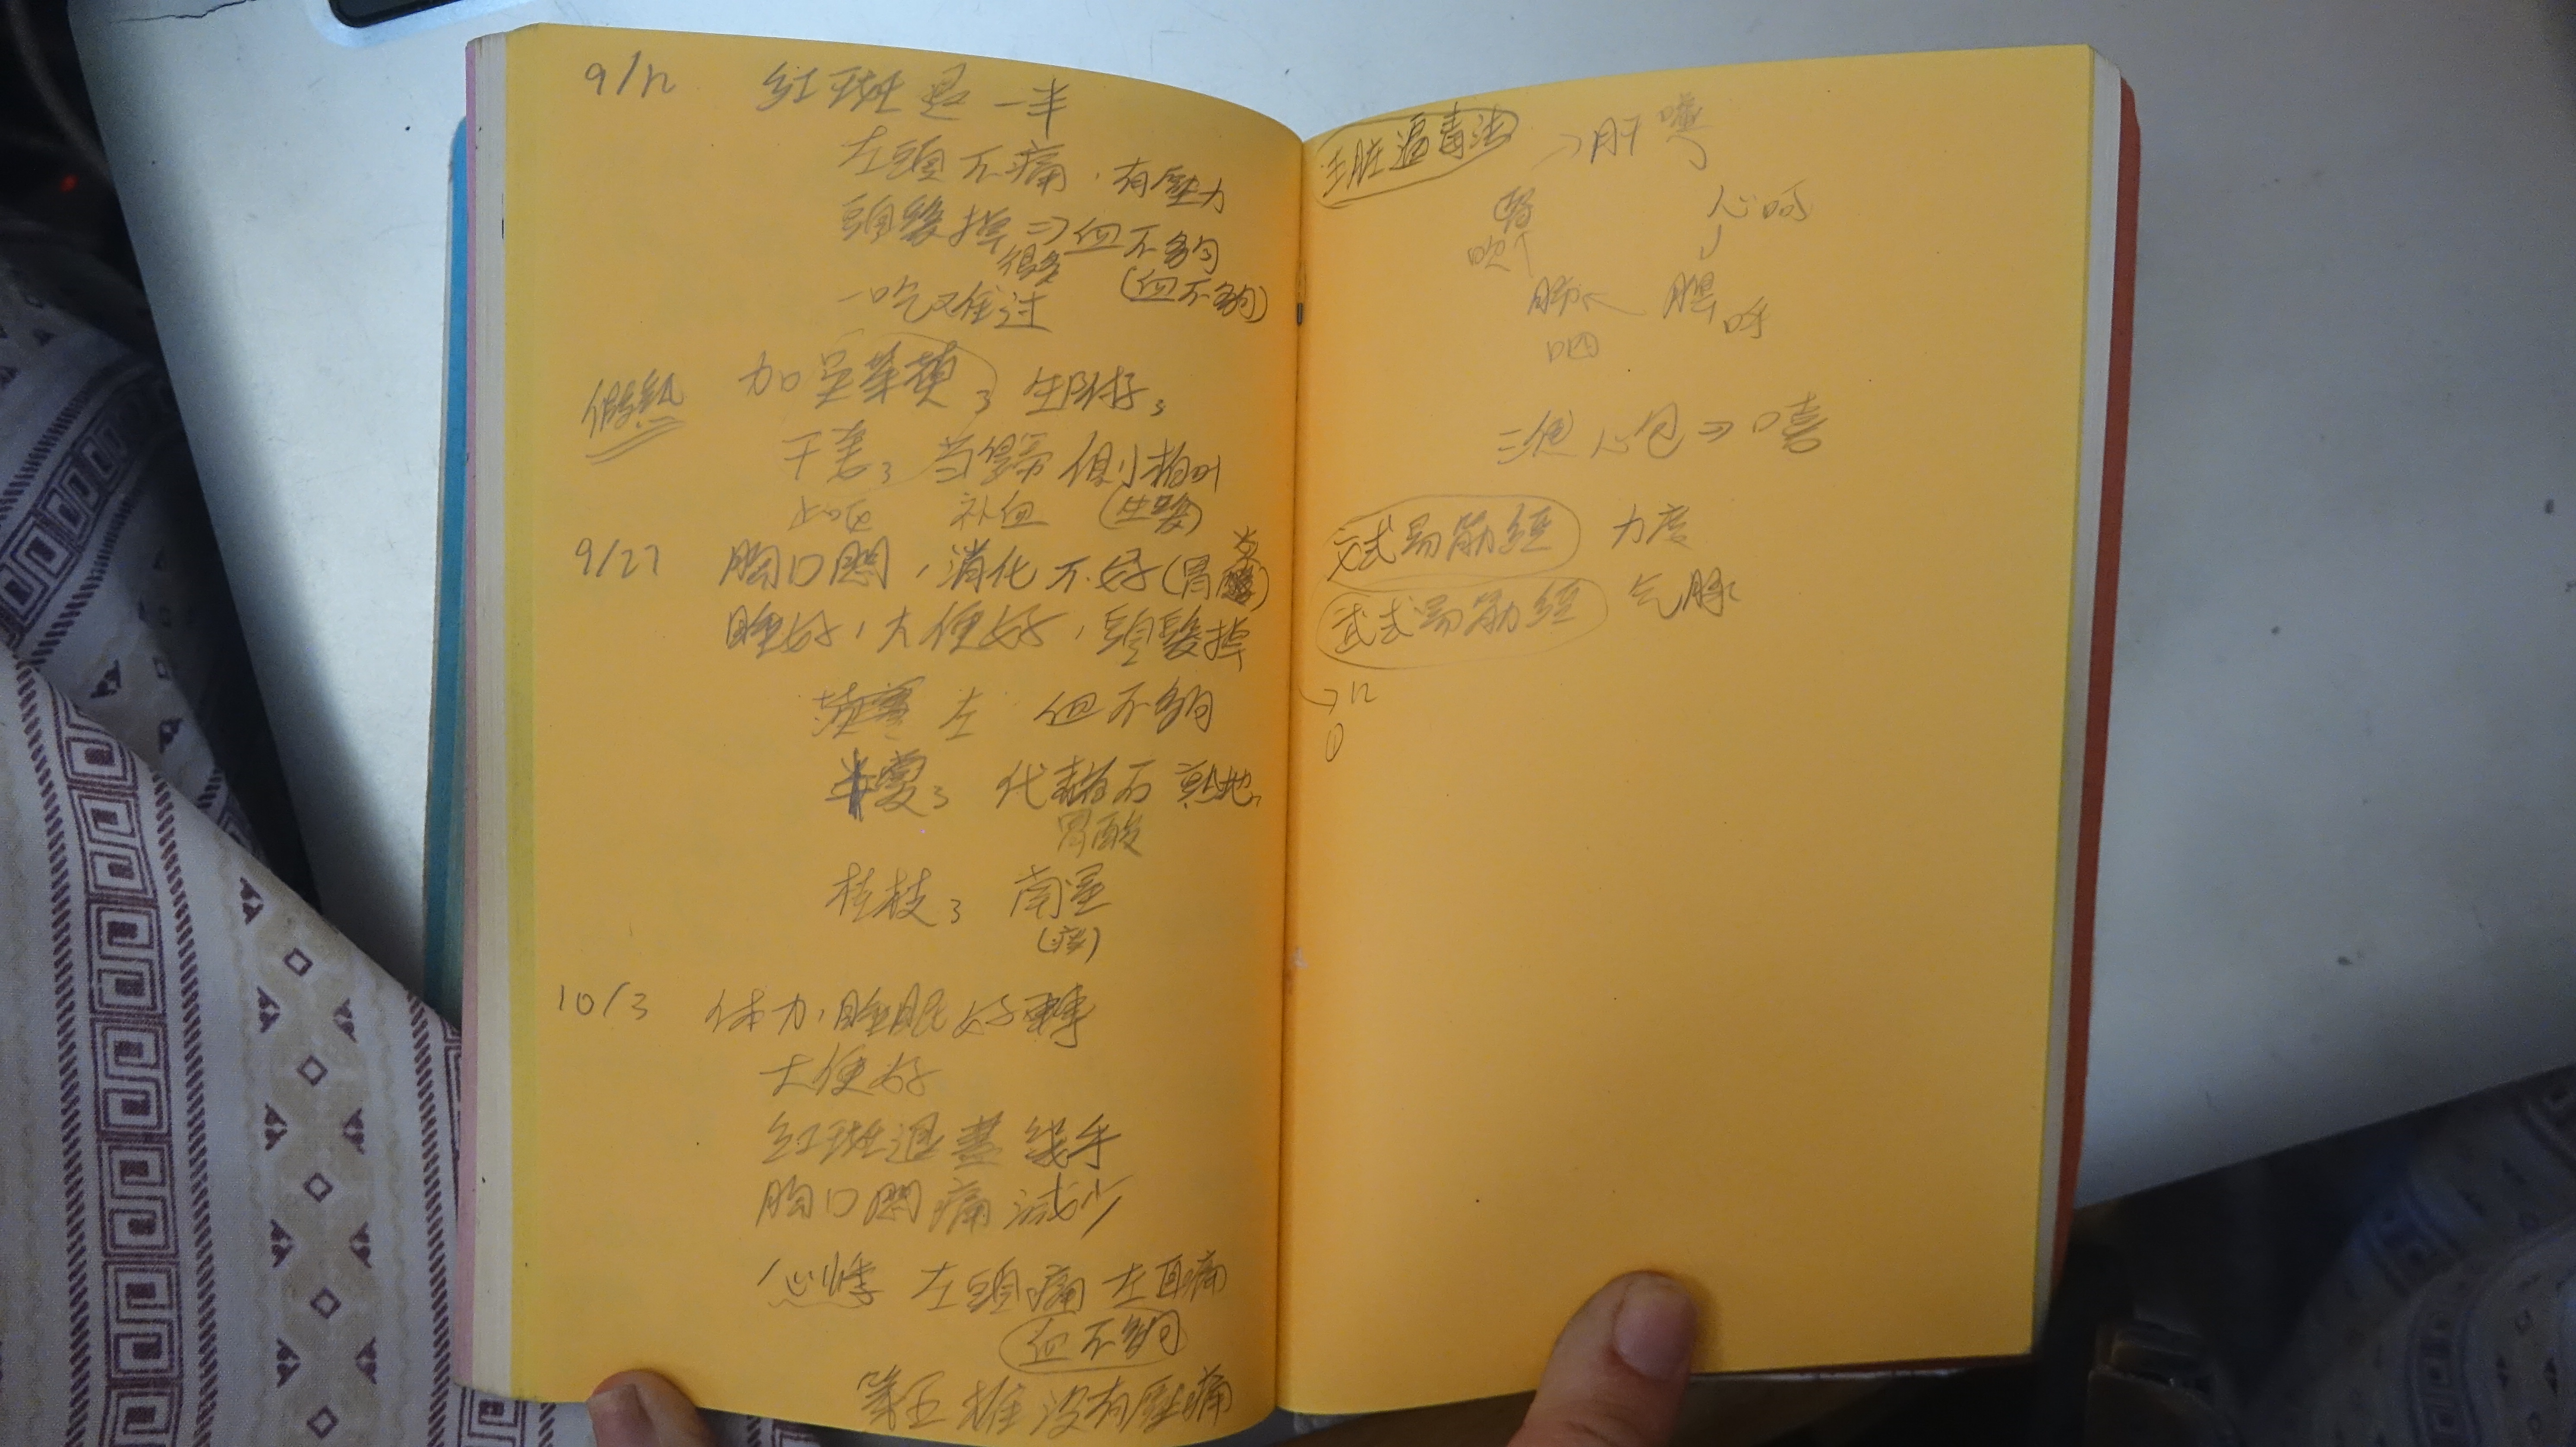 9/12 紅斑退一半
左頭不痛，有壓力
頭髮掉 ⇒ 血不夠
很多 (血不夠)
一吃又難过
假熱 加 吴茱萸3 生附子3
干姜3 当歸 側柏叶
止呕 补血 (生髮)
9/27 胸口悶，消化不好(胃炎)
睡好，大便好，頭髮掉
左 血不夠
半夏3 代赭石 熟地
胃酸
桂枝3 南星
(痰)
10/3 体力，睡眠好轉
大便好
紅斑退盡 幾乎
胸口悶痛 減少
心悸 左頭痛 左耳痛
血不夠
第五椎没有壓痛
五脏逼毒法 → 肝 噓
腎 心呵
吹
肺 ← 脾呼
呬
三焦 心包 ⇒ 嘻
文式易筋經 力度
武式易筋經 气脉
→ 12
①